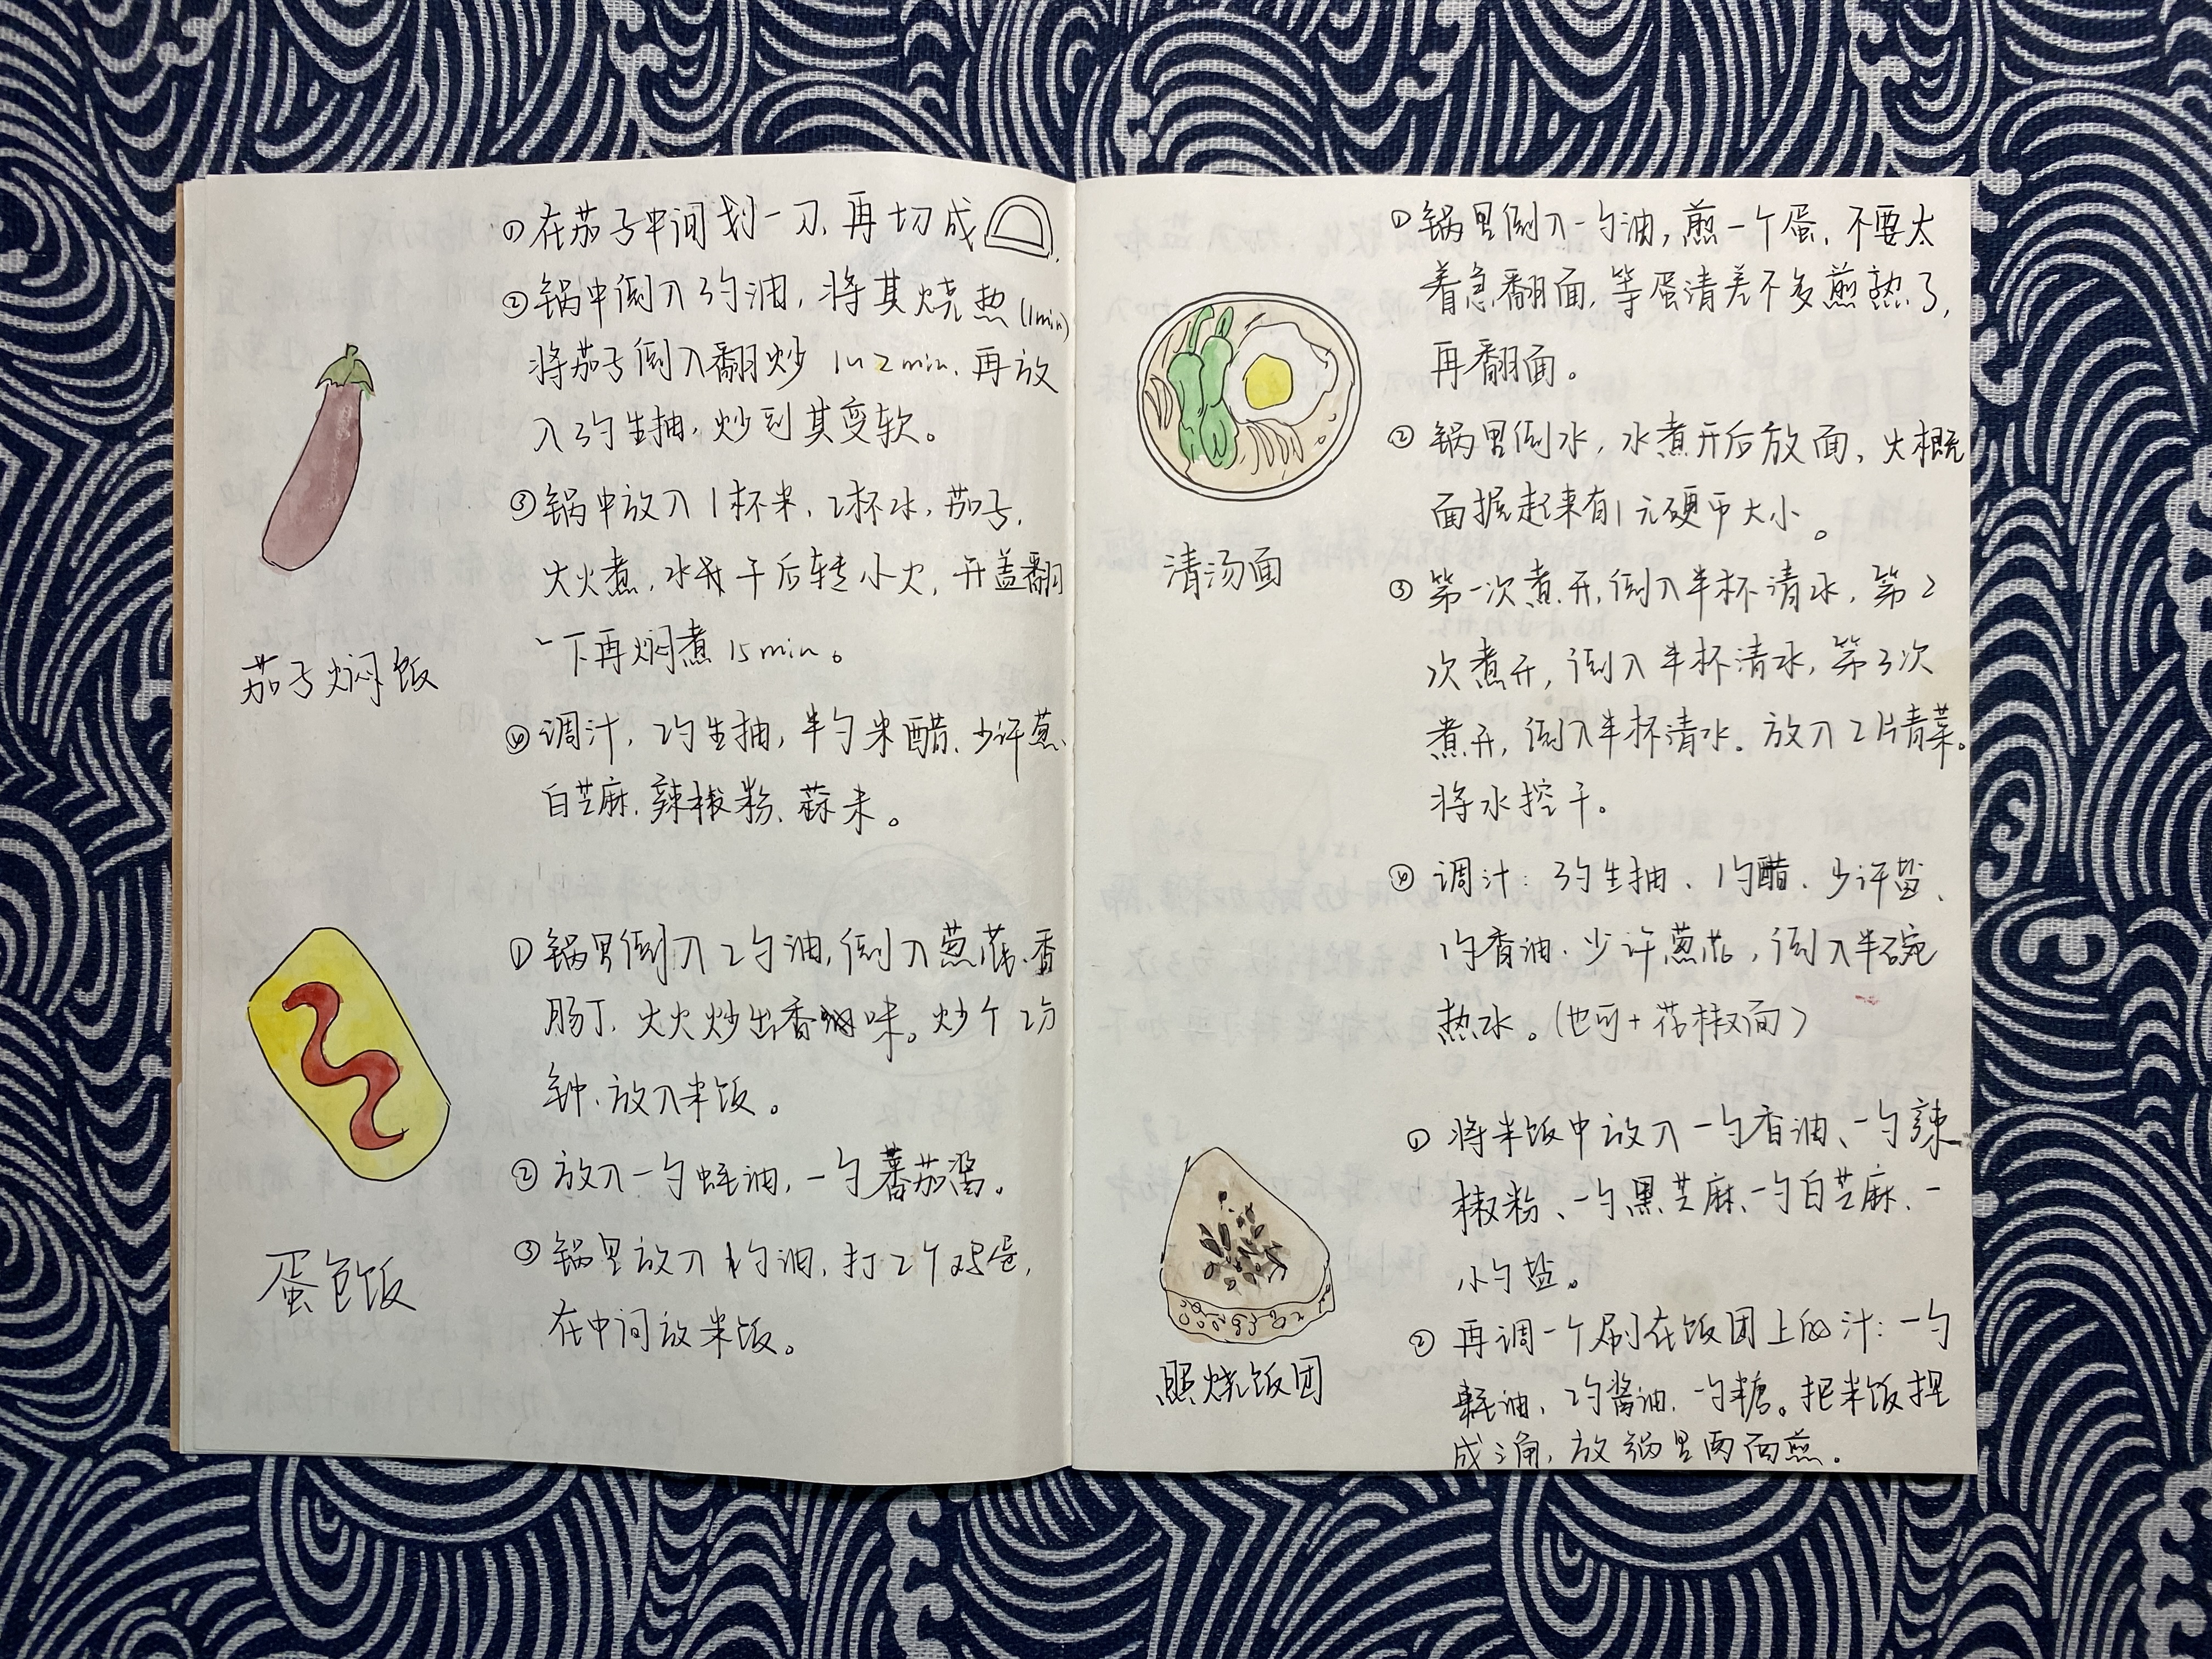 ①在茄子中间划一刀,再切成
②锅中倒入3勺油,将其烧热(1min)
将茄子倒入翻炒1~2min.再放
入3勺生抽,炒到其变软。
③锅中放入1杯米,2杯水,茄子,
大火煮,水干后转小火,开盖翻
一下再焖煮15min。
茄子焖饭
④调汁,2勺生抽,半勺米醋、少许葱、
白芝麻、辣椒粉、蒜末。
①锅里倒入2勺油,倒入葱花、香
肠丁,大火炒出香味。炒个2分
钟、放入米饭。
②放入一勺蚝油,一勺蕃茄酱。
③锅里放入1勺油,打2个鸡蛋,
在中间放米饭。
蛋包饭
①锅里倒入一勺油,煎一个蛋,不要太
着急翻面,等蛋清差不多煎熟了,
再翻面。
②锅里倒水,水煮开后放面、大概
面握起来有1元硬币大小。
清汤面
③第一次煮开,倒入半杯清水,第2
次煮开,倒入半杯清水,第3次
煮开,倒入半杯清水。放入2片青菜。
将水控干。
④调汁:3勺生抽、1勺醋、少许盐、
1勺香油、少许葱花,倒入半碗
热水。(也可+花椒面)
①将米饭中放入一勺香油、一勺辣
椒粉、一勺黑芝麻、一勺白芝麻、一
小勺盐。
②再调一个刷在饭团上的汁:一勺
蚝油、2勺酱油、一勺糖。把米饭捏
成三角,放锅里两面煎。
照烧饭团